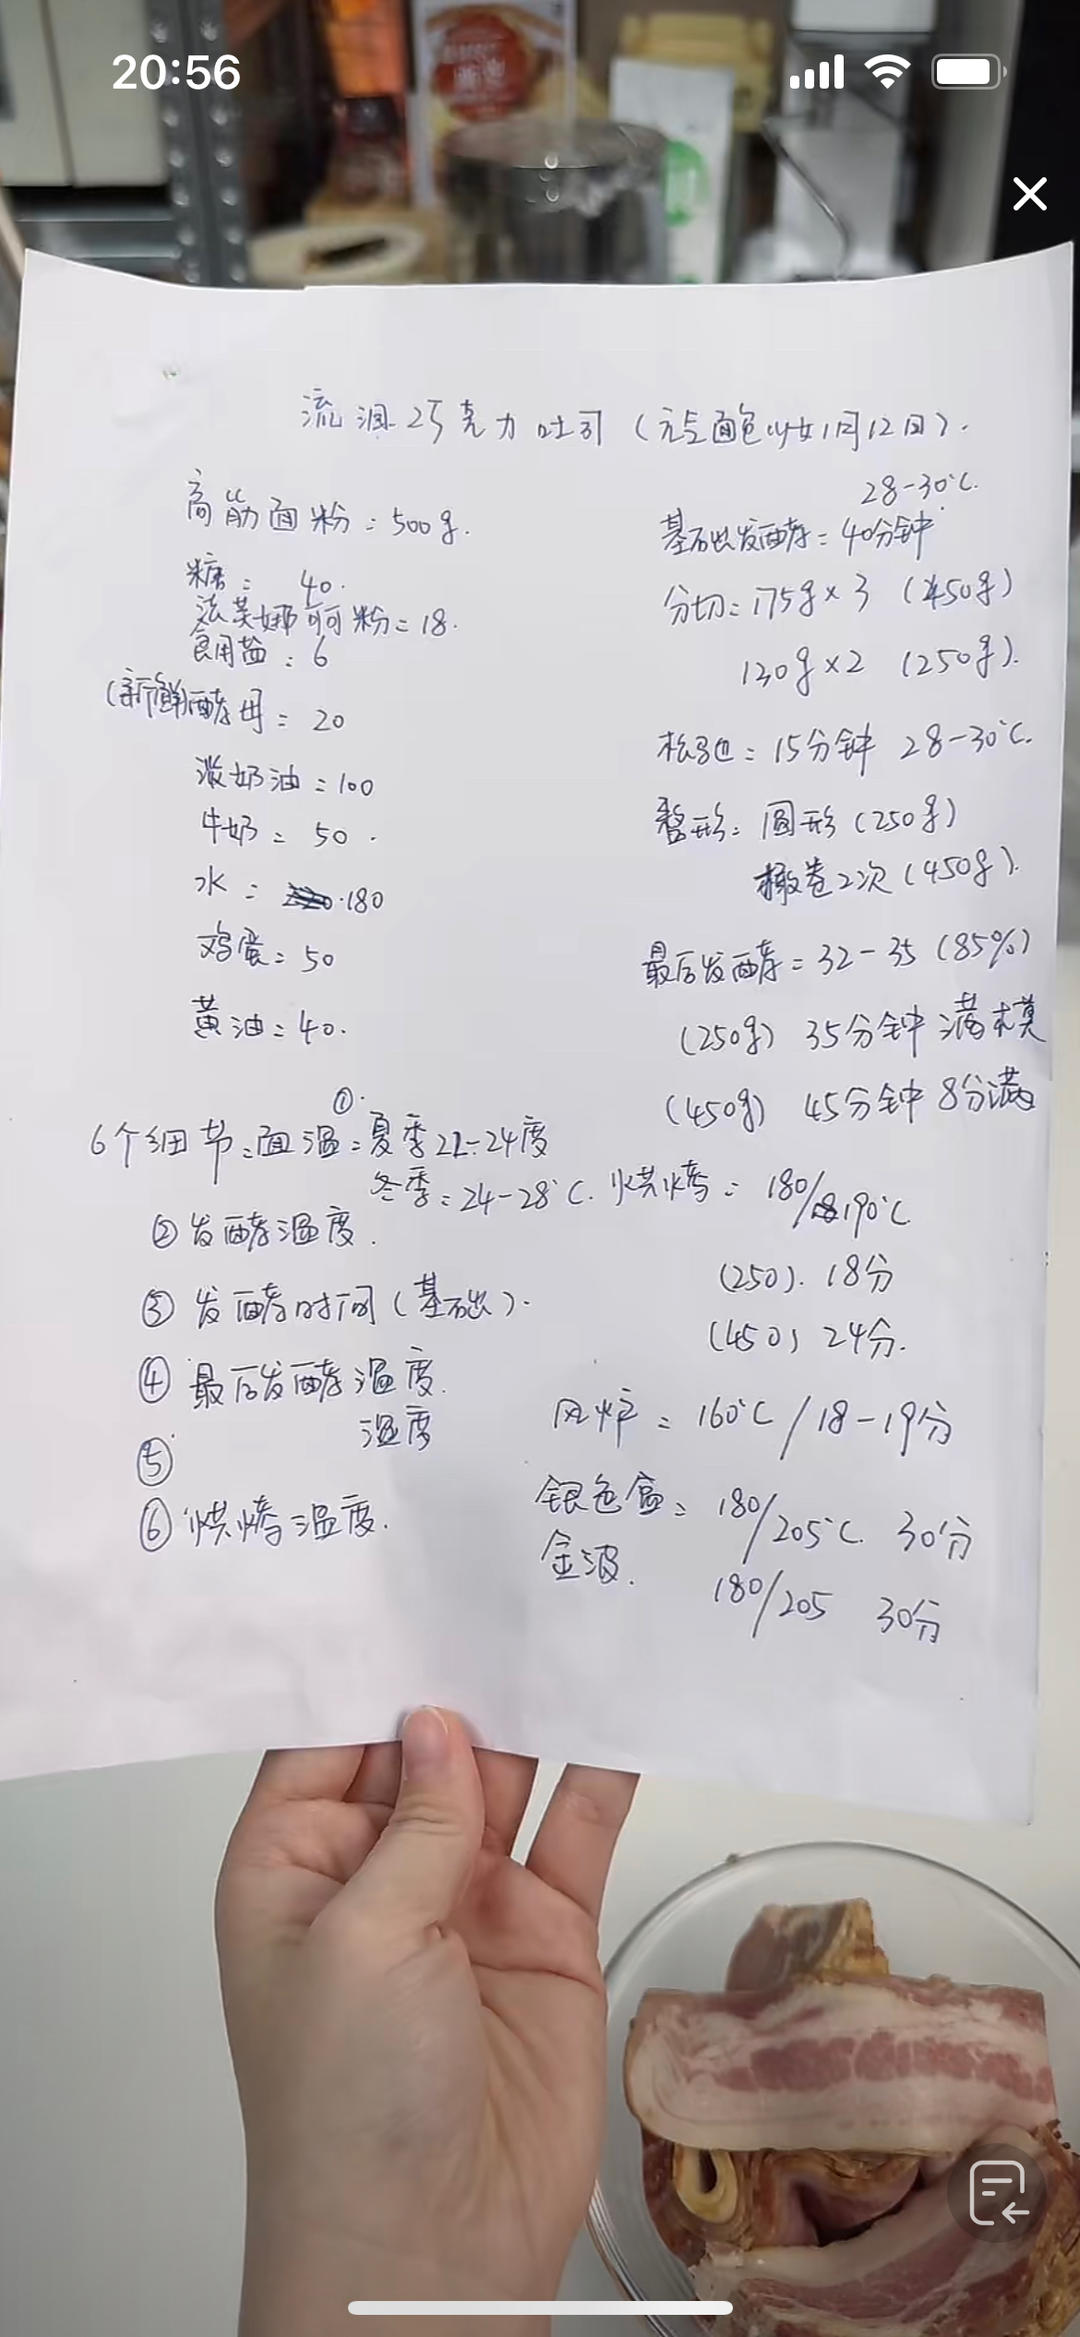 20:56
流泪巧克力吐司（元气面包少女1月12日）.
高筋面粉：500g.
糖：40.
法芙娜可可粉=18.
食用盐：6
（新鲜）酵母：20
淡奶油：100
牛奶：50.
水：180
鸡蛋：50
黄油：40.
28-30℃.
基础发酵：40分钟
分切：175g×3（450g）
130g×2（250g）.
松弛：15分钟 28-30℃.
整形：圆形（250g）
擀卷2次（450g）.
最后发酵：32-35（85%）
（250g）35分钟满模
（450g）45分钟8分满
6个细节：①面温：夏季22-24度
冬季：24-28℃.
②发酵温度.
③发酵时间（基础）.
④最后发酵温度.
湿度
⑤
⑥烘烤温度.
烘烤：180/190℃
（250）.18分
（450）24分.
风炉：160℃/18-19分
银色盒：180/205℃ 30分
金波. 180/205 30分